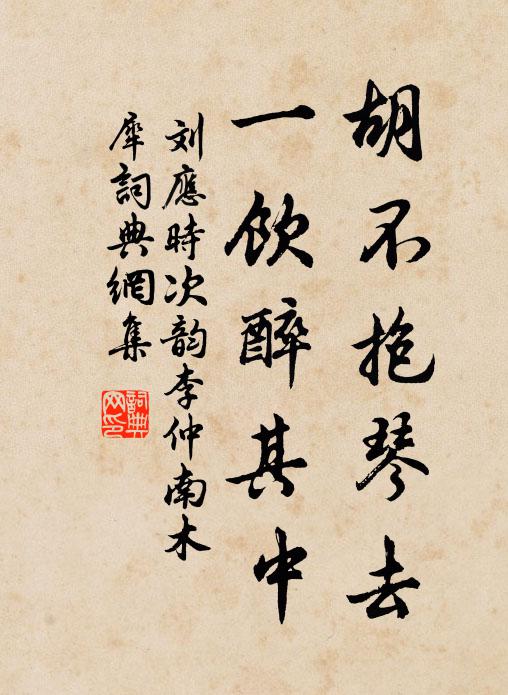 胡不抱琴去
一饮醉其中
刘應時次韵李仲南木
犀詞典網集
詞典
网印